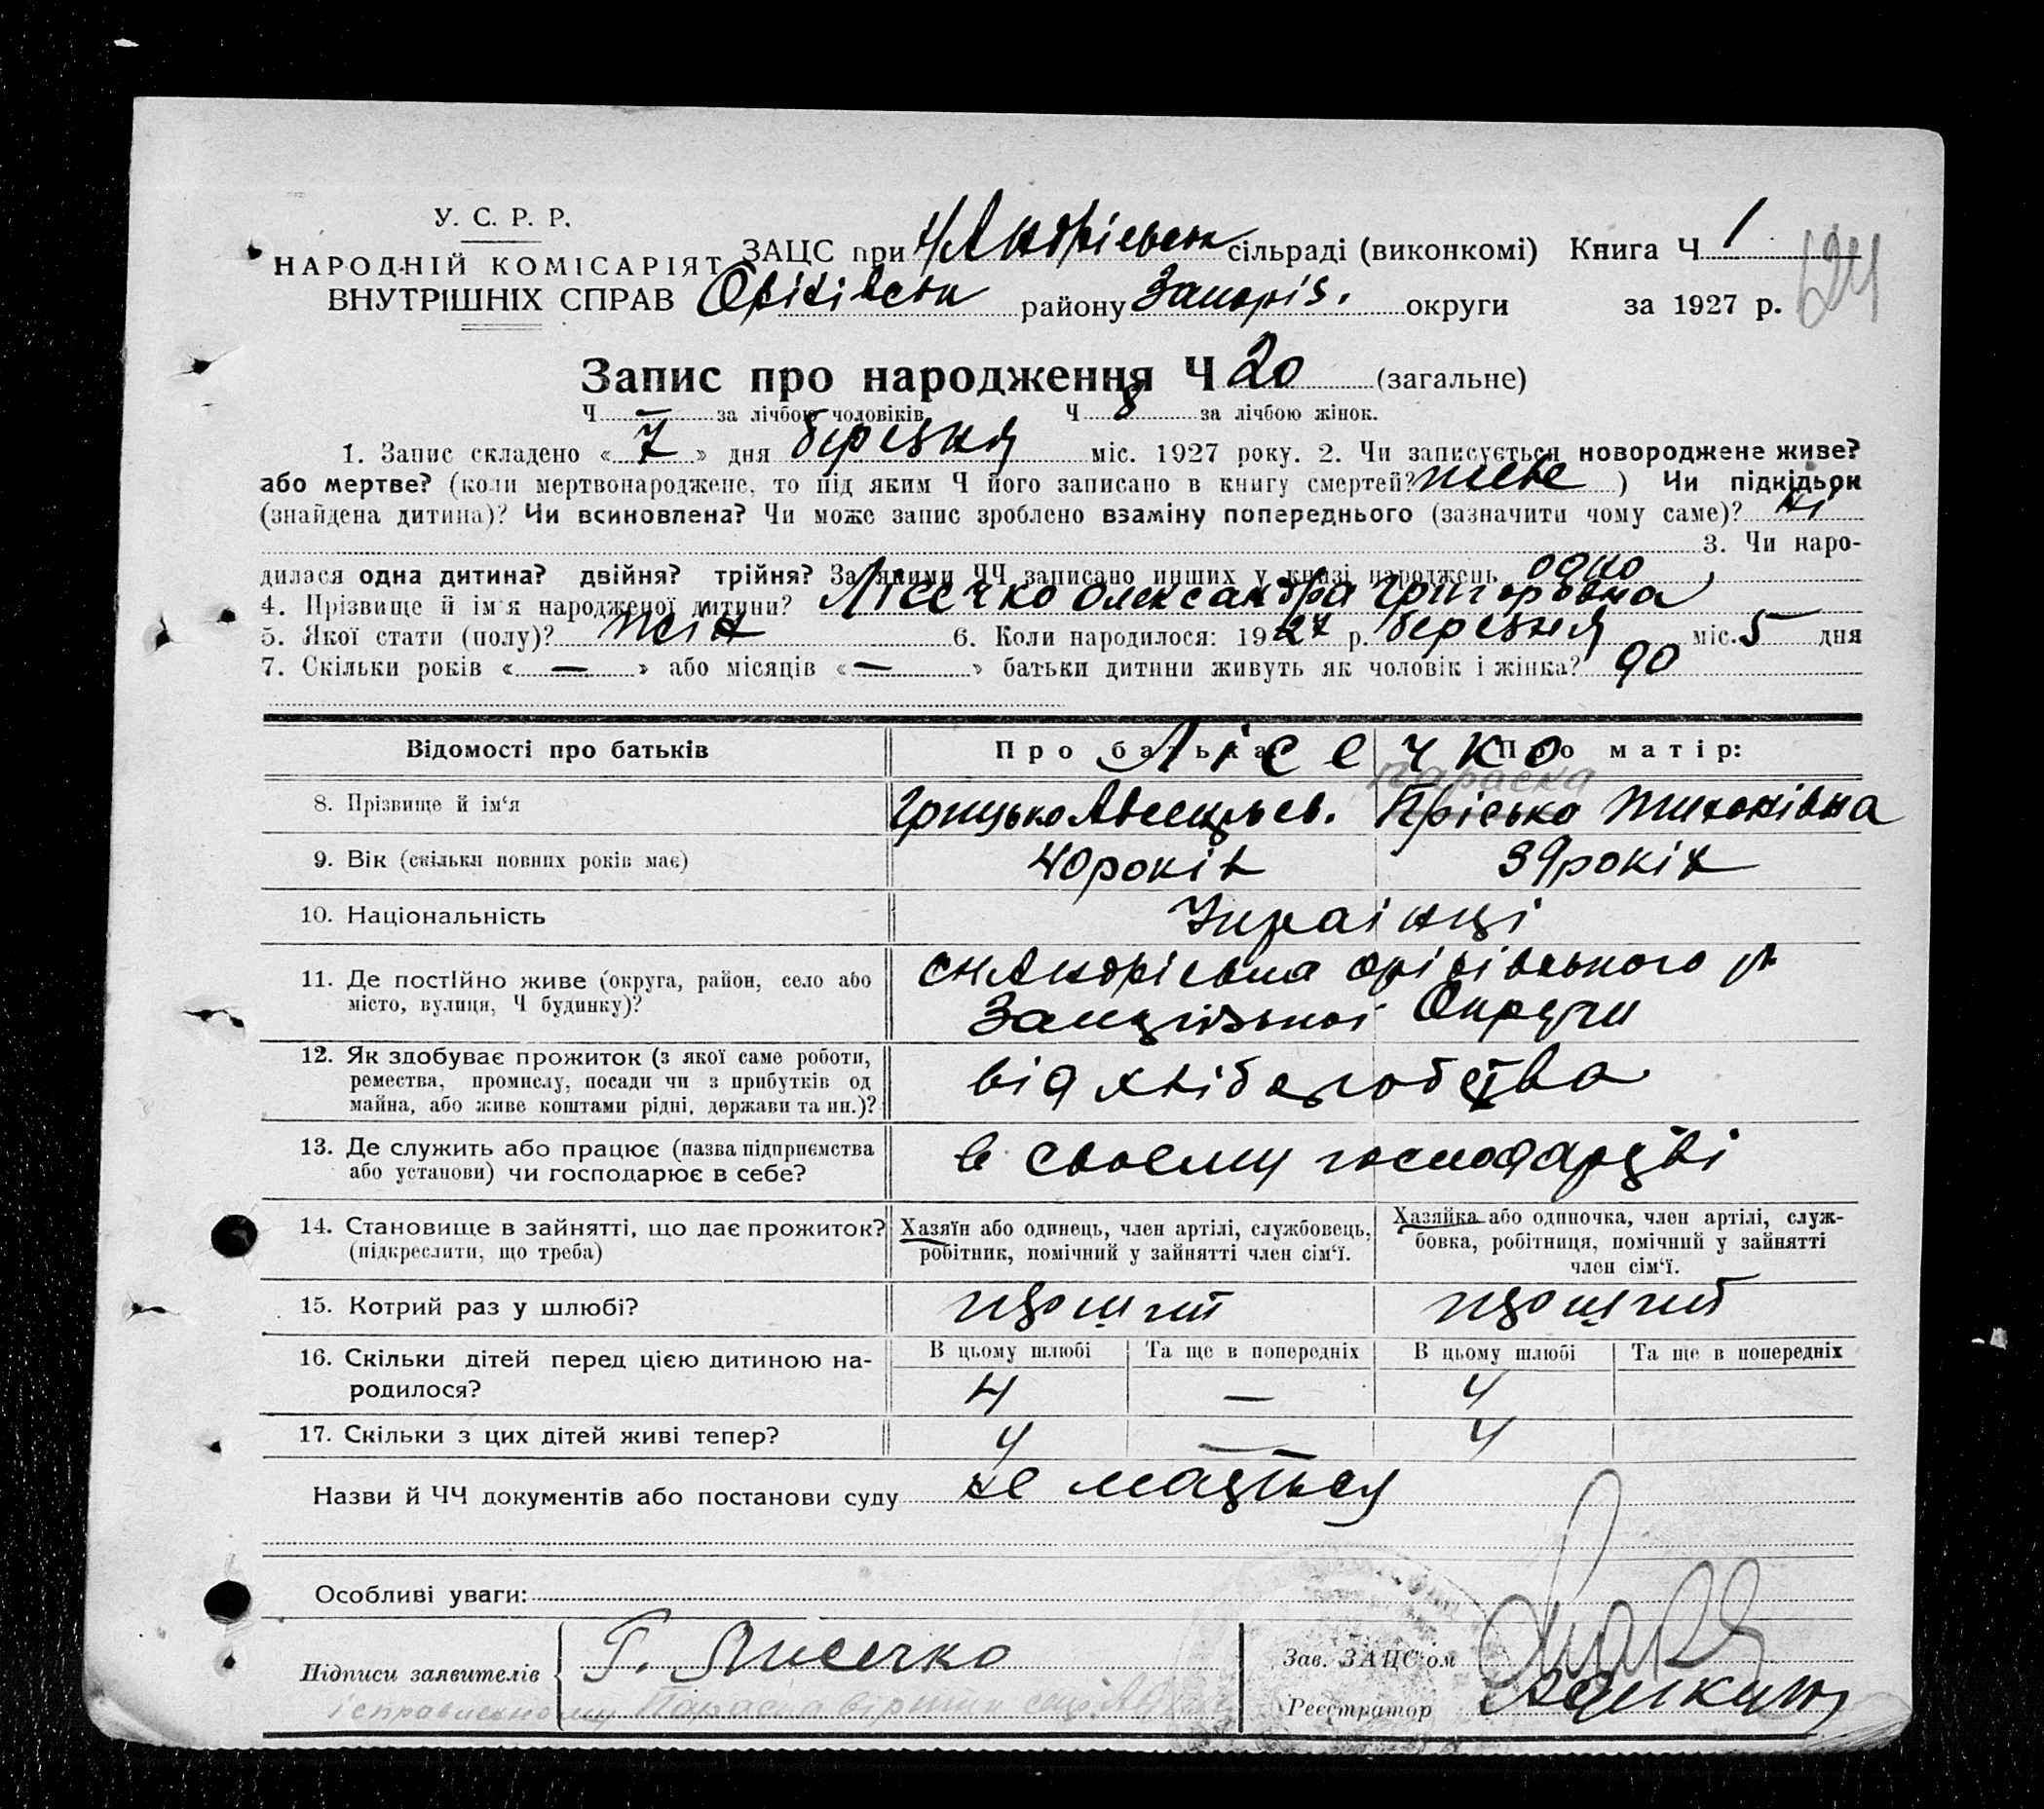 У. С. Р. Р.
НАРОДНІЙ КОМІСАРІЯТ
ВНУТРІШНІХ СПРАВ
ЗАЦС при Н/Андрієвськ сільраді (виконкомі) Книга Ч 1
Оріхівськ району Запоріз. округи за 1927 р.
124
Запис про народження Ч 20 (загальне)
Ч — за лічбою чоловіків Ч 8 за лічбою жінок.
1. Запис складено « 7 » дня березня міс. 1927 року. 2. Чи записується новороджене живе?
або мертве? (коли мертвонароджене, то під яким Ч його записано в книгу смертей? живе ) Чи підкідьок
(знайдена дитина)? Чи всиновлена? Чи може запис зроблено взаміну попереднього (зазначити чому саме)? ні
3. Чи наро-
дилася одна дитина? двійня? трійня? За якими ЧЧ записано инших у книзі народжень одно
4. Прізвище й ім'я народженої дитини? Лісечко Олександра Григоровна
5. Якої стати (полу)? жін 6. Коли народилося: 1927 р. березня міс. 5 дня
7. Скільки років « — » або місяців « — » батьки дитини живуть як чоловік і жінка? 90
Відомості про батьків Про батька Про матір:
Лісечко
Параска
8. Прізвище й ім‘я Грицько Прісько Тихонівна
9. Вік (скільки повних років має) 40 років 39 років
10. Національність Українці
11. Де постійно живе (округа, район, село або
місто, вулиця, Ч будинку)?
с Н Андрієвка Оріхівського р
Запорізької Округи
12. Як здобуває прожиток (з якої саме роботи,
ремества, промислу, посади чи з прибутків од
майна, або живе коштами рідні, держави та ин.)?
від хліборобства
13. Де служить або працює (назва підприємства
або установи) чи господарює в себе?
в своєму господарстві
14. Становище в зайнятті, що дає прожиток?
(підкреслити, що треба)
Хазяїн або одинець, член артілі, службовець,
робітник, помічний у зайнятті член сім‘ї.
Хазяйка або одиночка, член артілі, служ-
бовка, робітниця, помічний у зайнятті
член сім‘ї.
15. Котрий раз у шлюбі?
16. Скільки дітей перед цією дитиною на-
родилося?
В цьому шлюбі Та ще в попередніх В цьому шлюбі Та ще в попередніх
4 — 4
17. Скільки з цих дітей живі тепер? 4 — 4
Назви й ЧЧ документів або постанови суду не мається
Особливі уваги:
Підписи заявителів Г. Лисечко
Параска вірити
Зав. ЗАЦС'ом
Реєстратор